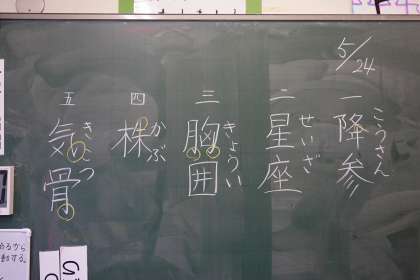 5/24
一 降参 こうさん
二 星座 せいざ
三 胸囲 きょうい
四 株 かぶ
五 気骨 きこつ